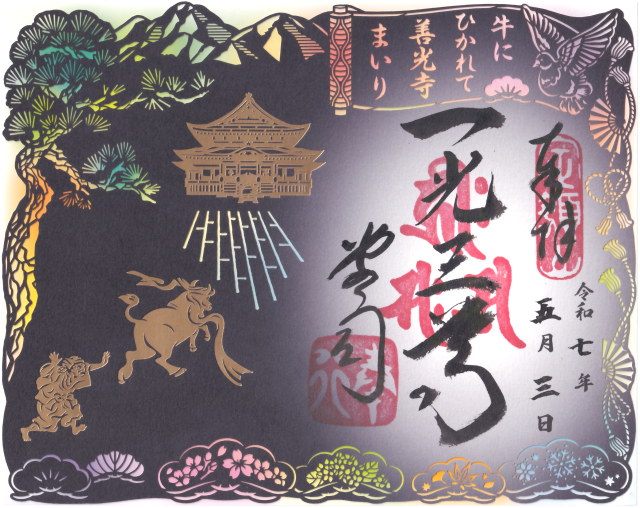 牛に
ひかれて
善光寺
まいり
奉拝
令和七年
五月三日
一光三尊
堂司